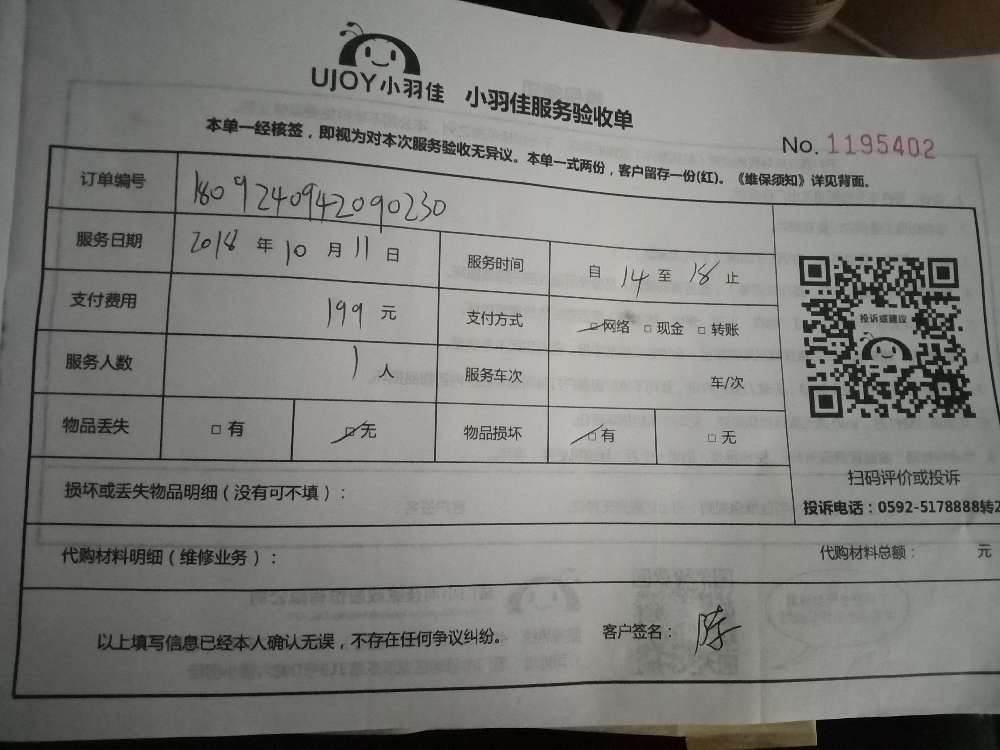 UJOY小羽佳 小羽佳服务验收单
No. 1195402
本单一经核签，即视为对本次服务验收无异议。本单一式两份，客户留存一份(红)。《维保须知》详见背面。
订单编号 1809240942090230
服务日期 2018 年 10 月 11 日 服务时间 自 14 至 18 止
支付费用 199 元 支付方式 □网络 □现金 □转账
服务人数 1 人 服务车次 车/次
物品丢失 □有 □无 物品损坏 □有 □无
投诉或建议
扫码评价或投诉
投诉电话：0592-5178888转2
损坏或丢失物品明细（没有可不填）：
代购材料明细（维修业务）： 代购材料总额： 元
以上填写信息已经本人确认无误，不存在任何争议纠纷。 客户签名： 陈